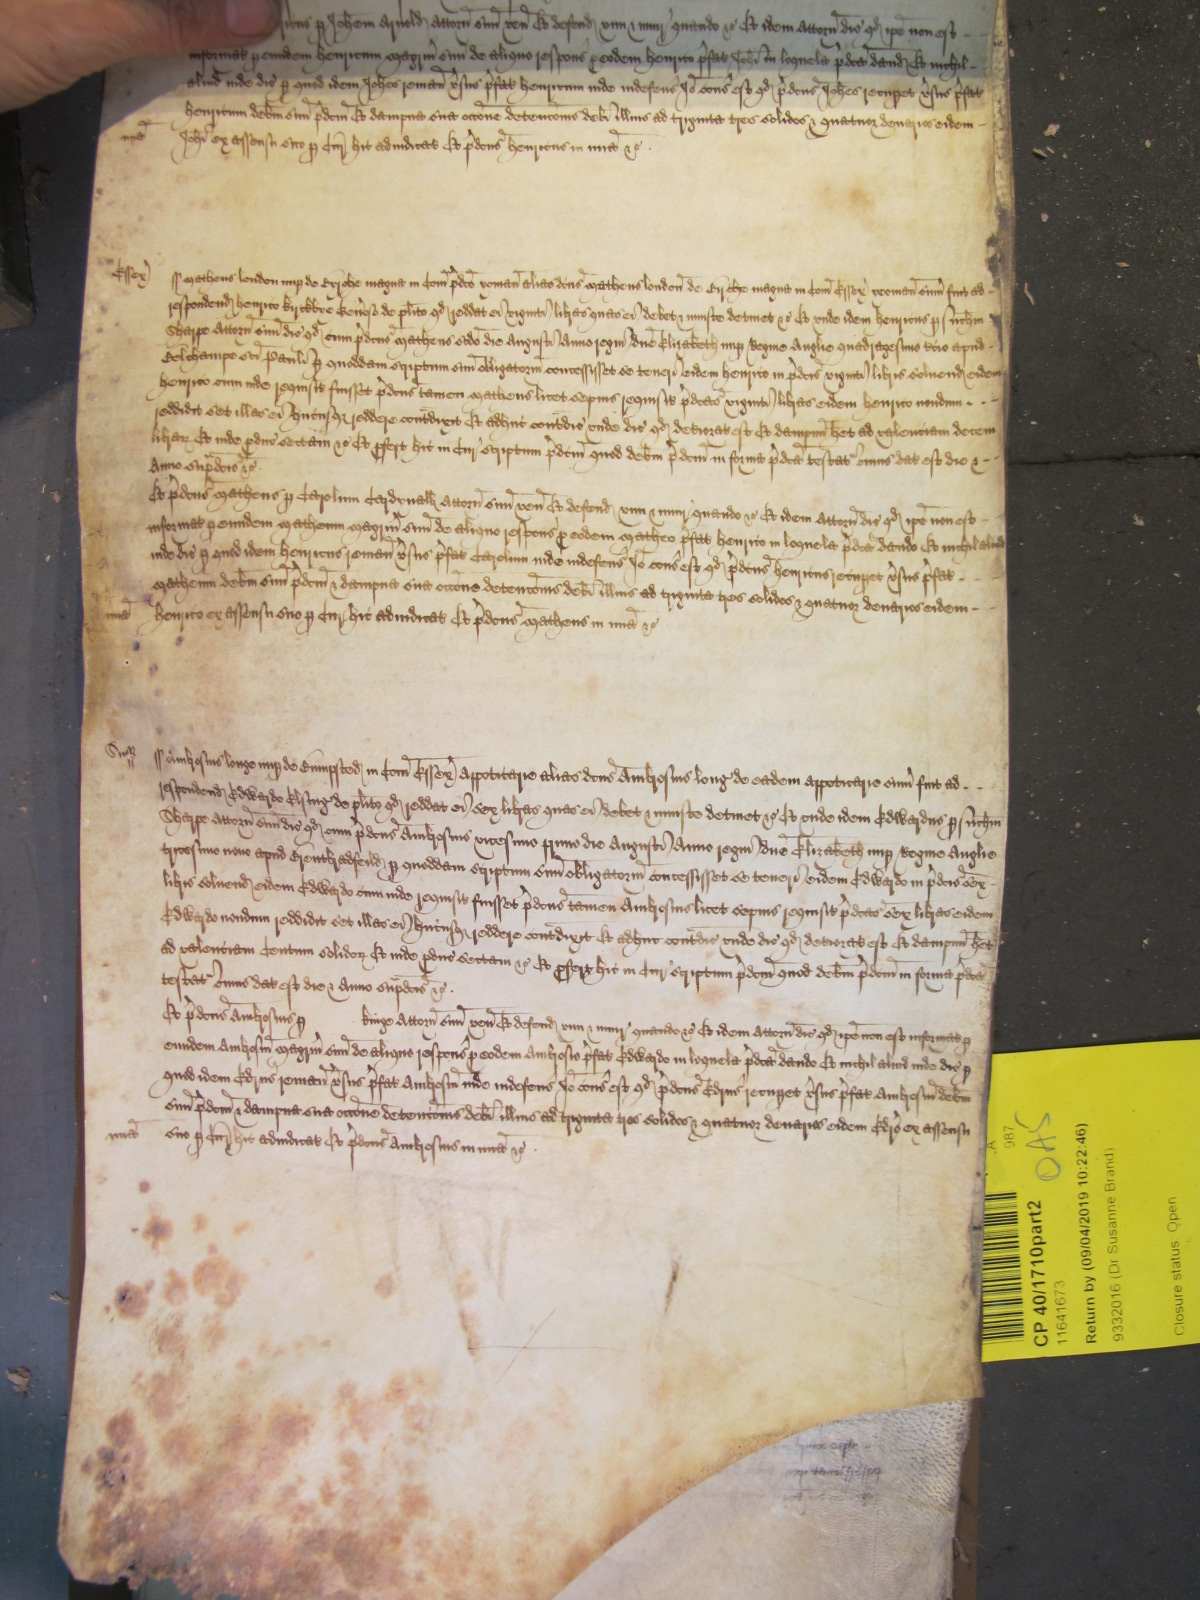 p Johem Arnold Attorn suu ven Et defend vim & iniur quando &c Et idem Attorn dic qd ipe non est
informat p eundem Henricum magrm suu de aliquo respons p eodem Henrico prfat Johi in loquela prdca dand Et nichil
aliud inde dic p quod idem Johes reman vsus prfat Henricum inde indefens Io cons est qd prdcus Johes recupet vsus prfat
Henricum debm suu prdcm Et dampna sua occone detenconis debi illius ad triginta tres solidos & quatuor denarios eidem
mia
Johi ex assensu suo p Cur hic adiudicat Et prdcus Henricus in mia &c .
Essex
Matheus london nup de magna in Com prdco yoman alias dcus Matheus london de magna in Com Essex yeoman sum fuit ad
respondend Henrico de plito qd reddat ei viginti libras quas ei debet & iniuste detinet &c Et unde idem Henricus p
Sharpe Attorn suu dic qd cum prdcus Matheus scdo die Augusti Anno regni dne Elizabeth nup Regine Anglie quadragesimo apud
Belchampe sci Pauli p quoddam scriptum suu obligatorm concessisset se teneri eidem Henrico in prdcis viginti libris solvend eidem
Henrico cum inde requisit fuisset prdcus tamen Matheus licet sepius requisit prdcas viginti libras eidem Henrico nondum
reddidit set illas ei hucusq reddere contdixit Et adhuc contdic unde dic qd deteriorat est Et dampnu het ad valenciam decem
librar Et inde pduc sectam &c Et pfert hic in Cur scriptum prdcm quod debm prdcm in forma prdca testat cuius dat est die &
Anno suprdcis &c
Et prdcus Matheus p Carolum Cardynall Attorn suu ven Et defend vim & iniur quando &c Et idem Attorn dic qd ipe non est
informat p eundem Matheum magrm suu de aliquo respons p eodem Matheo prfat Henrico in loquela prdca dando Et nichil aliud
inde dic p quod idem Henricus reman vsus prfat Carolum inde indefens Io cons est qd prdcus Henricus recupet vsus prfat
Matheum debm suu prdcm & dampna sua occone detenconis debi illius ad triginta tres solidos & quatuor denarios eidem
mia
Henrico ex assensu suo p Cur hic adiudicat Et prdcus Matheus in mia &c
Suff
Ambrosius longe nup de Bumpsted in Com Essex Appoticarie alias dcus Ambrosius long de eadem appoticarie sum fuit ad
respondend Edwardo de plito qd reddat ei sex libras quas ei debet & iniuste detinet &c Et unde idem Edwardus p
Sharpe Attorn suu dic qd cum prdcus Ambrosius vicesimo primo die Augusti Anno regni dne Elizabeth nup Regine Anglie
tricesimo nono apud p quoddam scriptum suu obligatorm concessisset se teneri eidem Edwardo in prdcis sex
libris solvend eidem Edwardo cum inde requisit fuisset prdcus tamen Ambrosius licet sepius requisit prdcas sex libras eidem
Edwardo nondum reddidit set illas ei hucusq reddere contdixit Et adhuc contdic unde dic qd deteriorat est Et dampnu het
ad valenciam Centum solidor Et inde pduc sectam &c Et pfert hic in Cur scriptum prdcm quod debm prdcm in forma prdca
testat cuius dat est die & Anno suprdcis &c .
Et prdcus Ambrosius p kinge Attorn suu ven Et defend vim & iniur quando &c Et idem Attorn dic qd ipe non est informat p
eundem Ambrosm magrm suu de aliquo respons p eodem Ambrosio prfat Edwardo in loquela prdca dando Et nichil aliud inde dic p
quod idem Edrus reman vsus prfat Ambrosm inde indefens Io cons est qd prdcus Edrus recupet vsus prfat Ambrosm debm
suu prdcm & dampna sua occone detenconis debi illius ad triginta tres solidos & quatuor denarios eidem Edro ex assensu
mia
suo p Cur hic adiudicat Et prdcus Ambrosius in mia &c .
A
987
OAS
CP 40/1710part2
11641673
Return by (09/04/2019 10:22:46)
9332016 (Dr Susanne Brand)
Closure status: Open